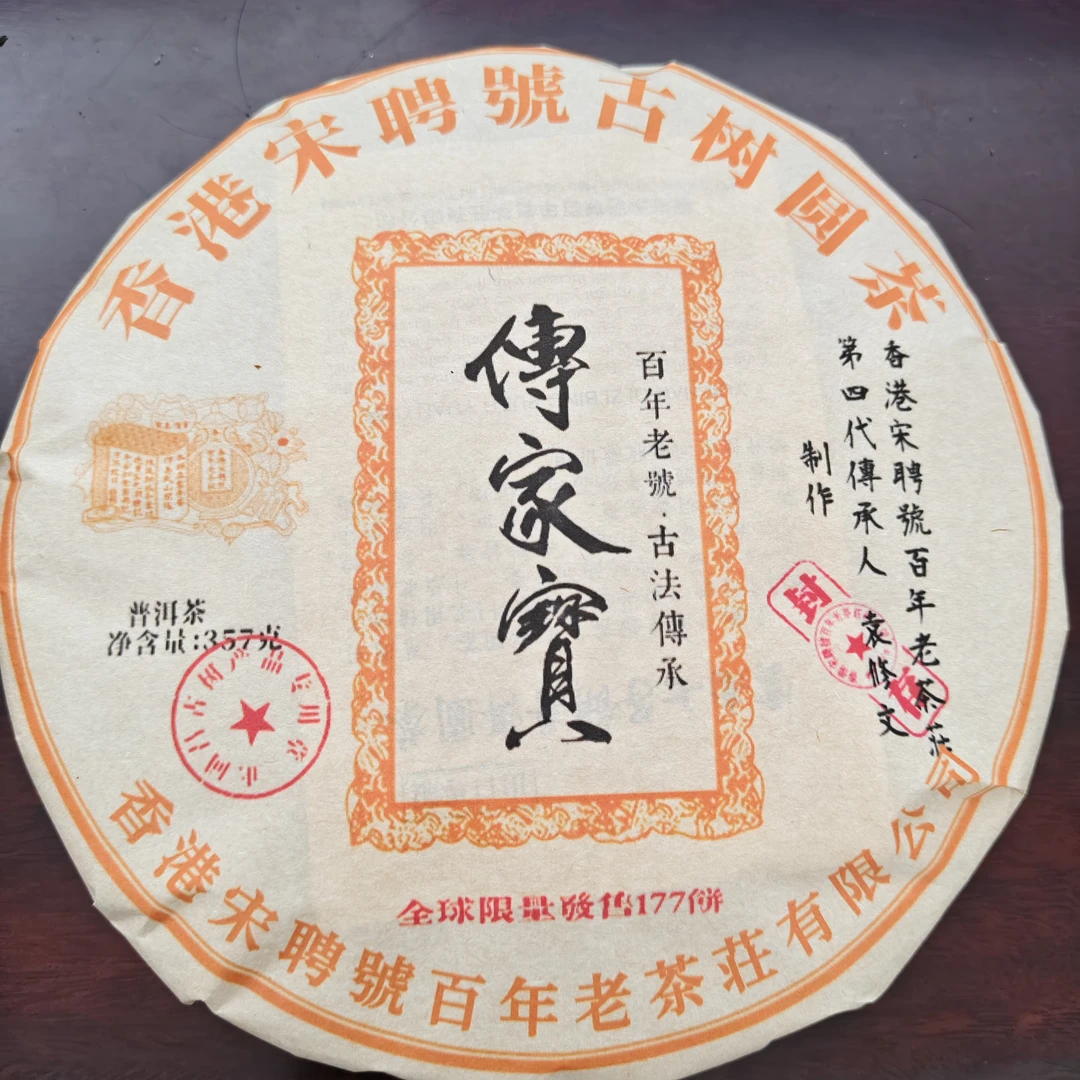 香港宋聘號古树圆茶
傳家寶
百年老號·古法傳承
香港宋聘號百年老茶莊
第四代傳承人 袁修文
制作
封
普洱茶
净含量:357克
全球限量發售177餅
香港宋聘號百年老茶莊有限公司